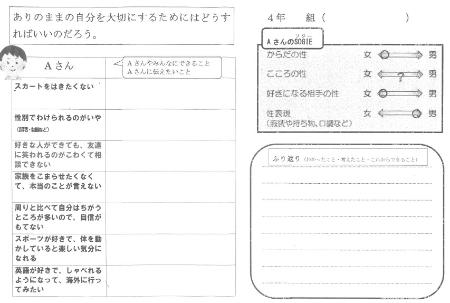 ありのままの自分を大切にするためにはどうす
ればいいのだろう。
Aさん
Aさんやみんなにできること
Aさんに伝えたいこと
スカートをはきたくない
性別でわけられるのがいや
好きな人ができても、友達
に笑われるのがこわくて相
談できない
家族をこまらせたくなく
て、本当のことが言えない
周りと比べて自分はちがう
ところが多いので、自信が
もてない
スポーツが好きで、体を動
かしていると楽しい気分に
なれる
英語が好きで、しゃべれる
ようになって、海外に行っ
てみたい
4年 組 ( )
AさんのSOGIE
からだの性 女 男
こころの性 女 ? 男
好きになる相手の性 女 男
性表現 女 男
(服装や持ち物、口調など)
ふり返り (わかったこと・考えたこと・これからできること)